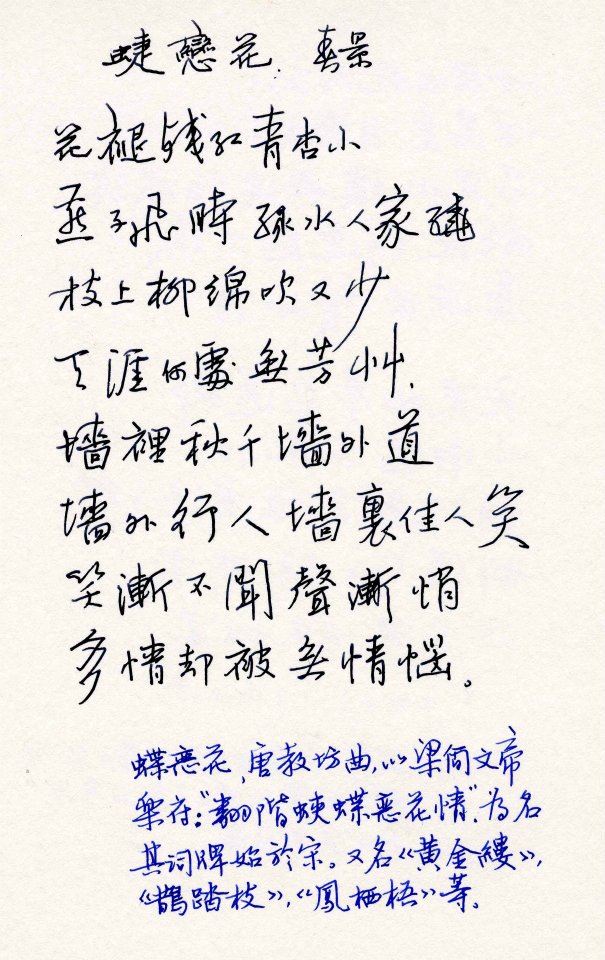 蝶戀花.春景
花褪残红青杏小
燕子飛時綠水人家繞
枝上柳綿吹又少
天涯何處無芳艸.
墻裡秋千墻外道
墻外行人墻裏佳人笑
笑漸不聞聲漸悄
多情却被無情惱。
蝶恋花,唐教坊曲,以梁簡文帝
樂府:"翻階蛱蝶恋花情"為名
其词牌始於宋。又名《黄金縷》,
《鵲踏枝》,《鳳栖梧》等.